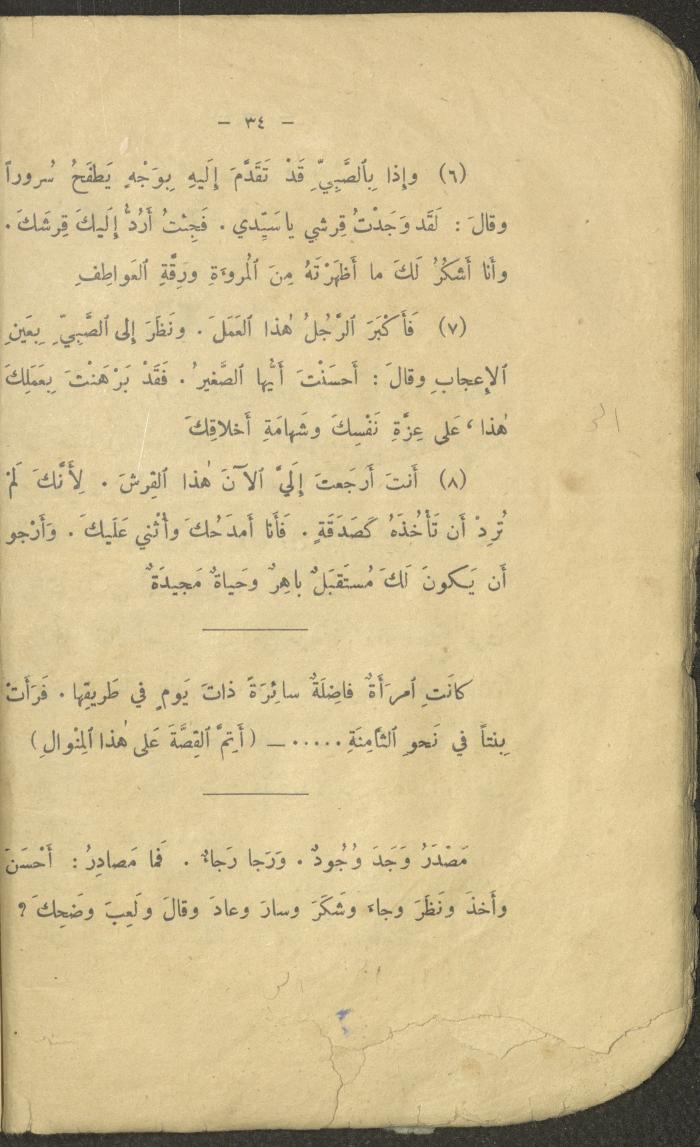 — ٣٤ —
(٦) وإِذا بِٱلصَّبِيِّ قَدْ تَقَدَّمَ إِلَيهِ بِوَجْهٍ يَطفَحُ سُروراً
وقالَ : لَقَد وَجَدْتُ قِرشي يا سَيِّدي . فَجِئتُ أَرُدُّ إِلَيكَ قِرشَكَ .
وأَنا أَشكُرُ لَكَ ما أَظهَرْتَهُ مِنَ ٱلمُروءَةِ ورِقَّةِ ٱلعَواطِفِ
(٧) فَأَكْبَرَ ٱلرَّجُلُ هٰذا ٱلعَمَلَ . ونَظَرَ إِلى ٱلصَّبِيِّ بِعَينِ
ٱلإِعجابِ وقالَ : أَحسَنْتَ أَيُّها ٱلصَّغيرُ . فَقَدْ بَرْهَنْتَ بِعَمَلِكَ
هٰذا ، عَلى عِزَّةِ نَفْسِكَ وشَهامَةِ أَخلاقِكَ
(٨) أَنتَ أَرجَعتَ إِلَيَّ ٱلآنَ هٰذا ٱلقِرشَ . لِأَنَّكَ لَمْ
تُرِدْ أَن تَأْخُذَهُ كَصَدَقَةٍ . فَأَنا أَمدَحُكَ وأُثْني عَلَيكَ . وَأَرْجو
أَن يَكونَ لَكَ مُستَقبَلٌ باهِرٌ وحَياةٌ مَجيدَةٌ
كانَتِ ٱمرَأَةٌ فاضِلَةٌ سائِرَةً ذاتَ يَومٍ في طَريقِها . فَرَأَتْ
بِنتاً في نَحوِ ٱلثّامِنَةِ ..... — (أَتِمَّ ٱلقِصَّةَ عَلى هٰذا ٱلمِنْوالِ)
مَصْدَرُ وَجَدَ وُجُودٌ . وَرَجا رَجاءٌ . فَما مَصادِرُ : أَحْسَنَ
وأَخذَ ونَظَرَ وجاءَ وشَكَرَ وسارَ وعادَ وقالَ ولَعِبَ وضَحِكَ ؟